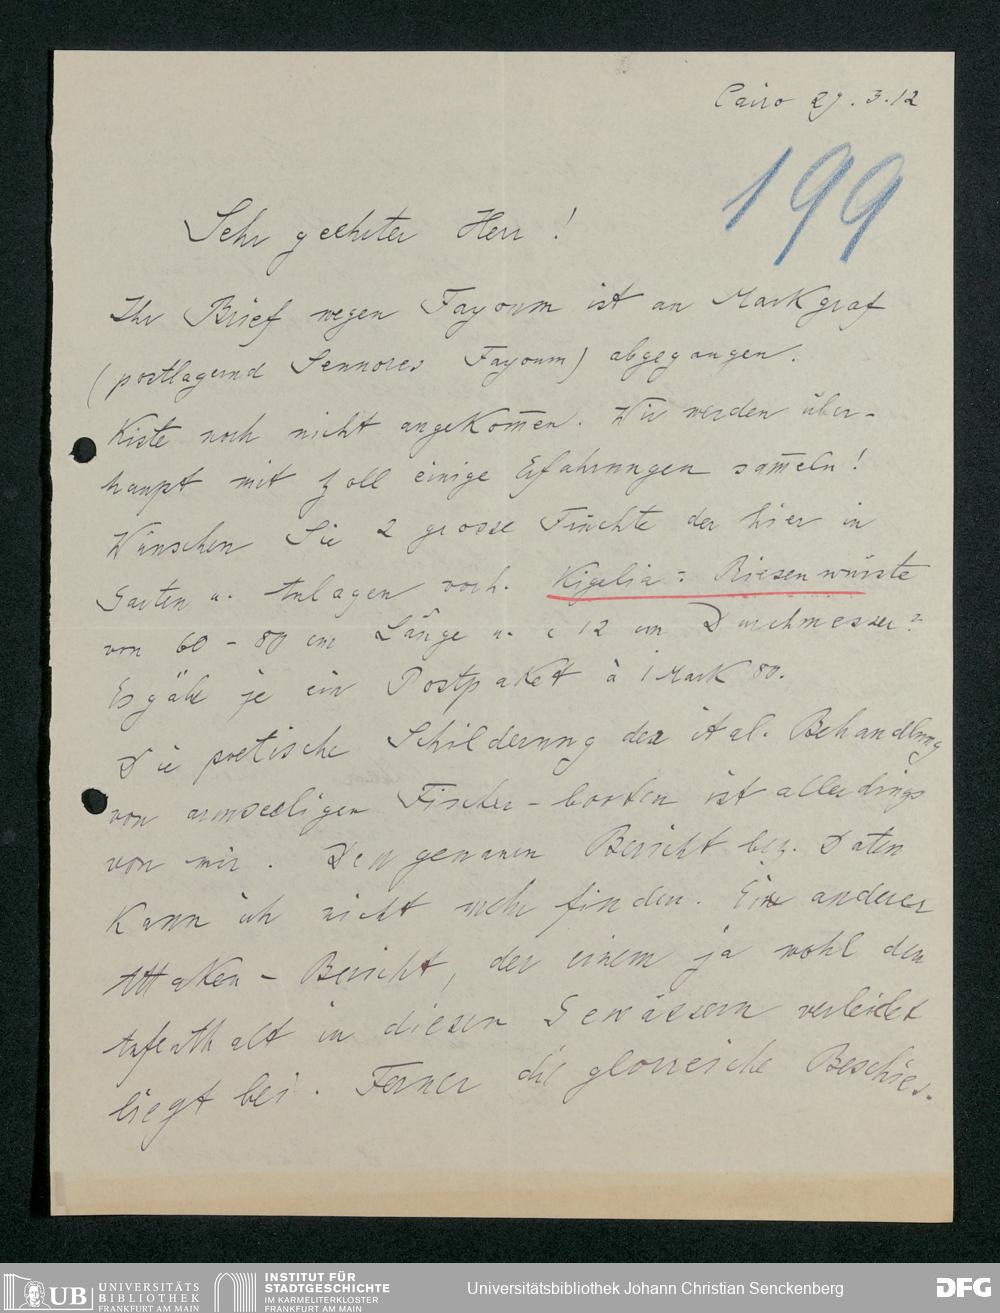 Cairo 29.3.12
199
Sehr geehrter Herr!
Ihr Brief wegen Fayoum ist an Markgraf
(postlagernd Sennores Fayoum) abgegangen.
Kiste noch nicht angekom̅en. Wir werden über-
haupt mit Zoll einige Erfahrungen sam̅eln!
Wünschen Sie 2 grosse Früchte der hier in
Garten u. Anlagen vorh. Kigelia = Riesenwürste
von 60 - 80 cm Länge u. c 12 cm Durchmesser?
Es gäbe je ein Postpaket à 1 Mark 80.
Die poetische Schilderung der ital. Behandlung
von armseeligen Fischer-booten ist allerdings
von mir. Den genauen Bericht bez. Daten
kann ich nicht mehr finden. Ein anderer
Attaken - Bericht, der einem ja wohl den
Aufenthalt in diesen Gewässern verleidet
liegt bei. Ferner die glorreiche Beschies.
UB UNIVERSITÄTS
BIBLIOTHEK
FRANKFURT AM MAIN
INSTITUT FÜR
STADTGESCHICHTE
IM KARMELITERKLOSTER
FRANKFURT AM MAIN
Universitätsbibliothek Johann Christian Senckenberg
DFG